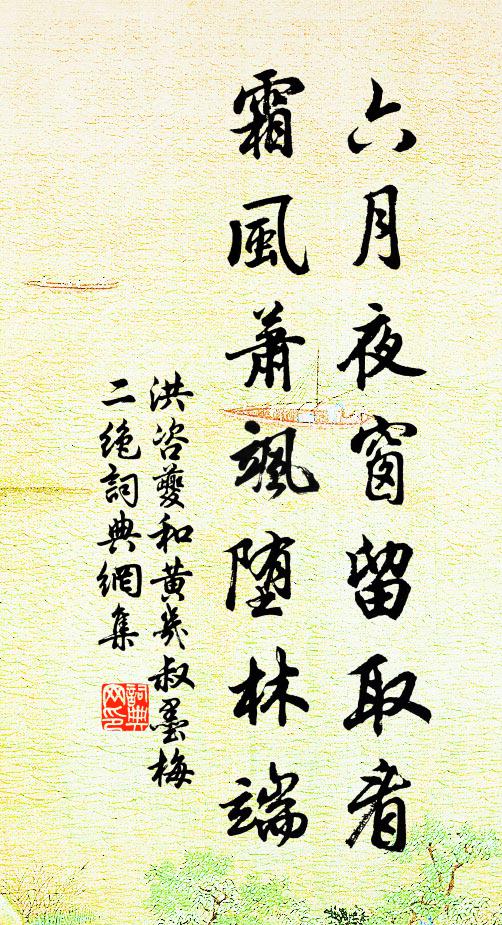 六月夜窗留取看
霜風蕭颯堕林端
洪咨夔和黄幾叔墨梅
二絶詞典網集
詞典网印